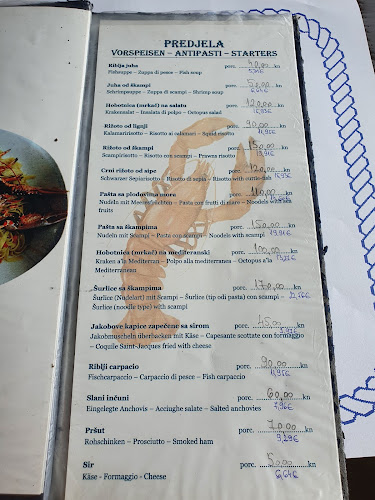 PREDJELA
VORSPEISEN – ANTIPASTI – STARTERS
Riblja juha porc. 40,00 kn
Fishsuppe – Zuppa di pesce – Fish soup
Juha od škampi porc. 50,00 kn
Schrimpsuppe – Zuppa di scampi – Shrimp soup 6,64€
Hobotnica (mrkač) na salatu porc. 120,00 kn
Krakensalat – Insalata di polpo – Octopus salad
Rižoto od lignji porc. 90,00 kn
Kalamaririsotto – Risotto ai calamari – Squid risotto
Rižoto od škampi porc. 150,00 kn
Scampirisotto – Risotto con scampi – Prawns risotto 19,91€
Crni rižoto od sipe porc. 120,00 kn
Schwarzer Sepiarisotto – Risotto di sepia – Risotto with
Pašta sa plodovima mora porc. 110,00 kn
Nudeln mit Meeresfrüchten – Pasta con frutti di mare – Noodels with sea
fruits
Pašta sa škampima porc. 150,00 kn
Nudeln mit Scampi – Pasta con scampi – Noodels with scampi 19,91€
Hobotnica (mrkač) na mediteranski porc. 100,00 kn
Kraken a'la Mediterran – Polpo alla mediterranea – Octopus a'la
Mediterranean
Šurlice sa škampima porc. 170,00 kn
Šurlice (Nudelart) mit Scampi – Šurlice (tip odi pasta) con scampi –
Šurlice (noodle type) with scampi
Jakobove kapice zapečene sa sirom porc. 45,00 kn
Jakobmuscheln überbacken mit Käse – Capesante scottate con formaggio
– Coquile Saint-Jacques fried with cheese
Riblji carpacio porc. 90,00 kn
Fischcarpaccio – Carpaccio di pesce – Fish carpaccio
Slani inćuni porc. 60,00 kn
Eingelegte Anchovis – Acciughe salate – Salted anchovies 7,96€
Pršut porc. 70,00 kn
Rohschinken – Prosciutto – Smoked ham 9,29€
Sir porc. 50,00 kn
Käse - Formaggio - Cheese 6,64€